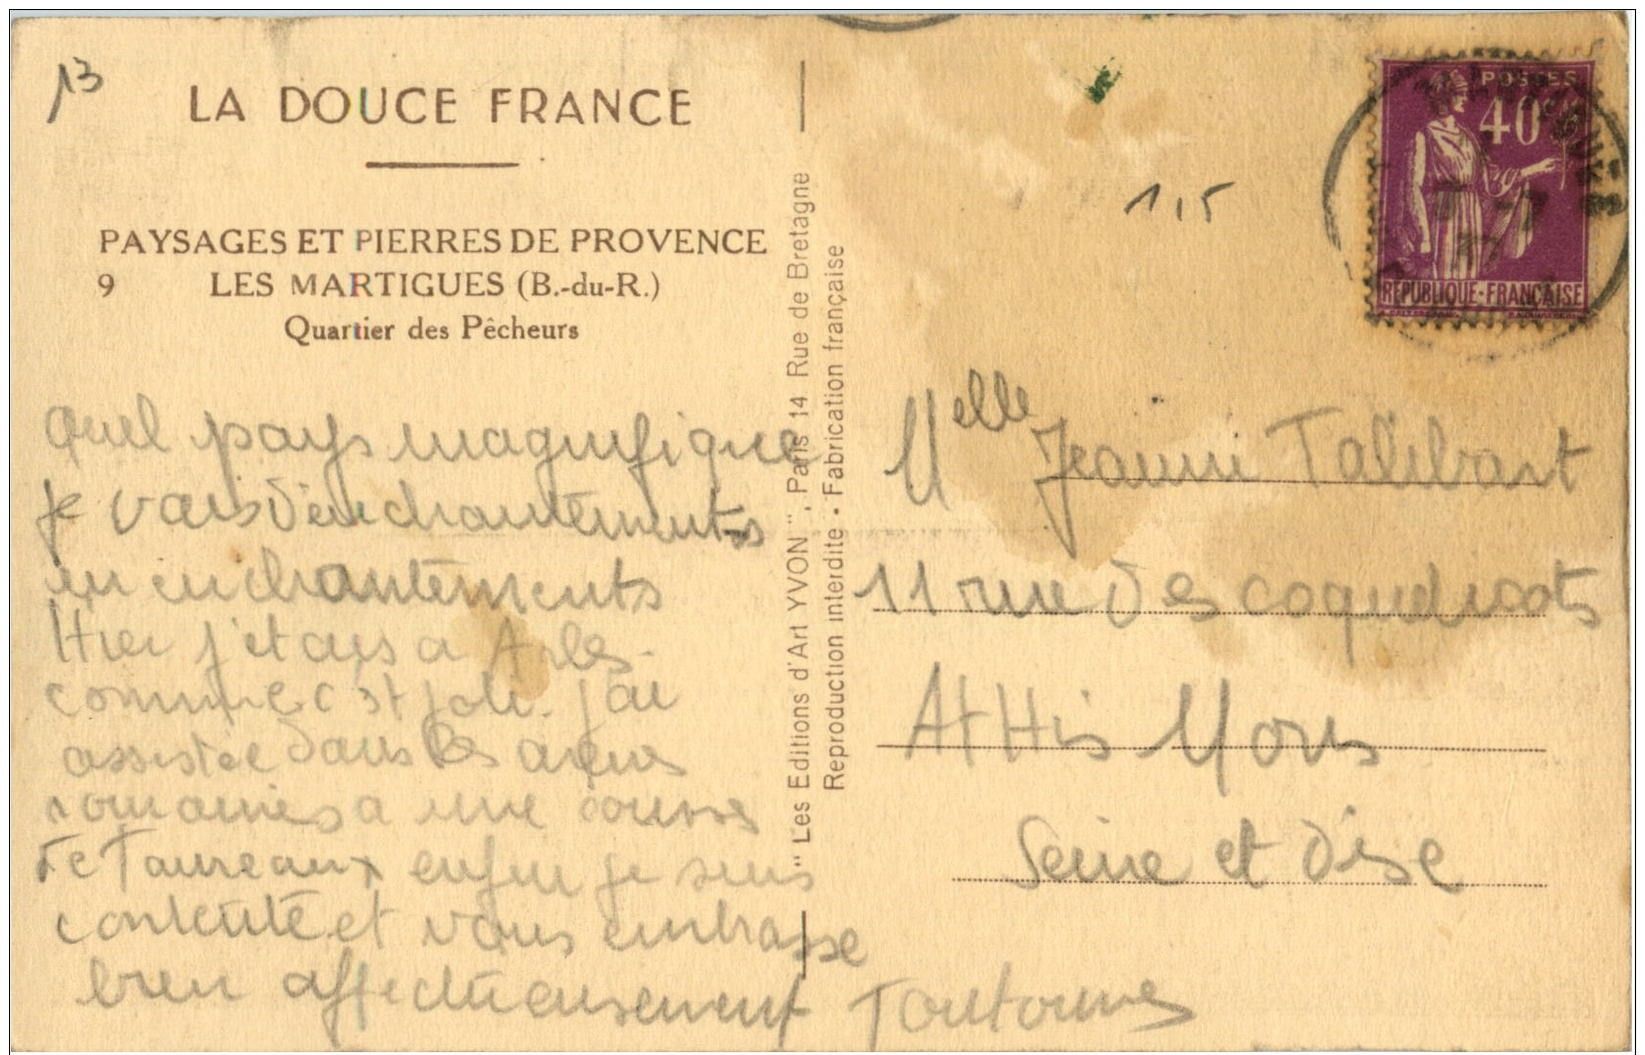 13
LA DOUCE FRANCE
PAYSAGES ET PIERRES DE PROVENCE
9 LES MARTIGUES (B.-du-R.)
Quartier des Pêcheurs
Quel pays magnifique
je vais d'enchantements
en enchantements
Hier j'etais a Arles.
comme c'est joli. j'ai
assistée dans les arènes
romaines a une course
de Taureaux enfin je suis
contente et vous embrasse
bien affectueusement
"Les Editions d'Art YVON", Paris 14 Rue de Bretagne
Reproduction interdite - Fabrication française
1,5
POSTES
40c
REPUBLIQUE-FRANÇAISE
Melle Jeanine Talibart
11 rue des coquelicots
Athis Mons
Seine et Oise